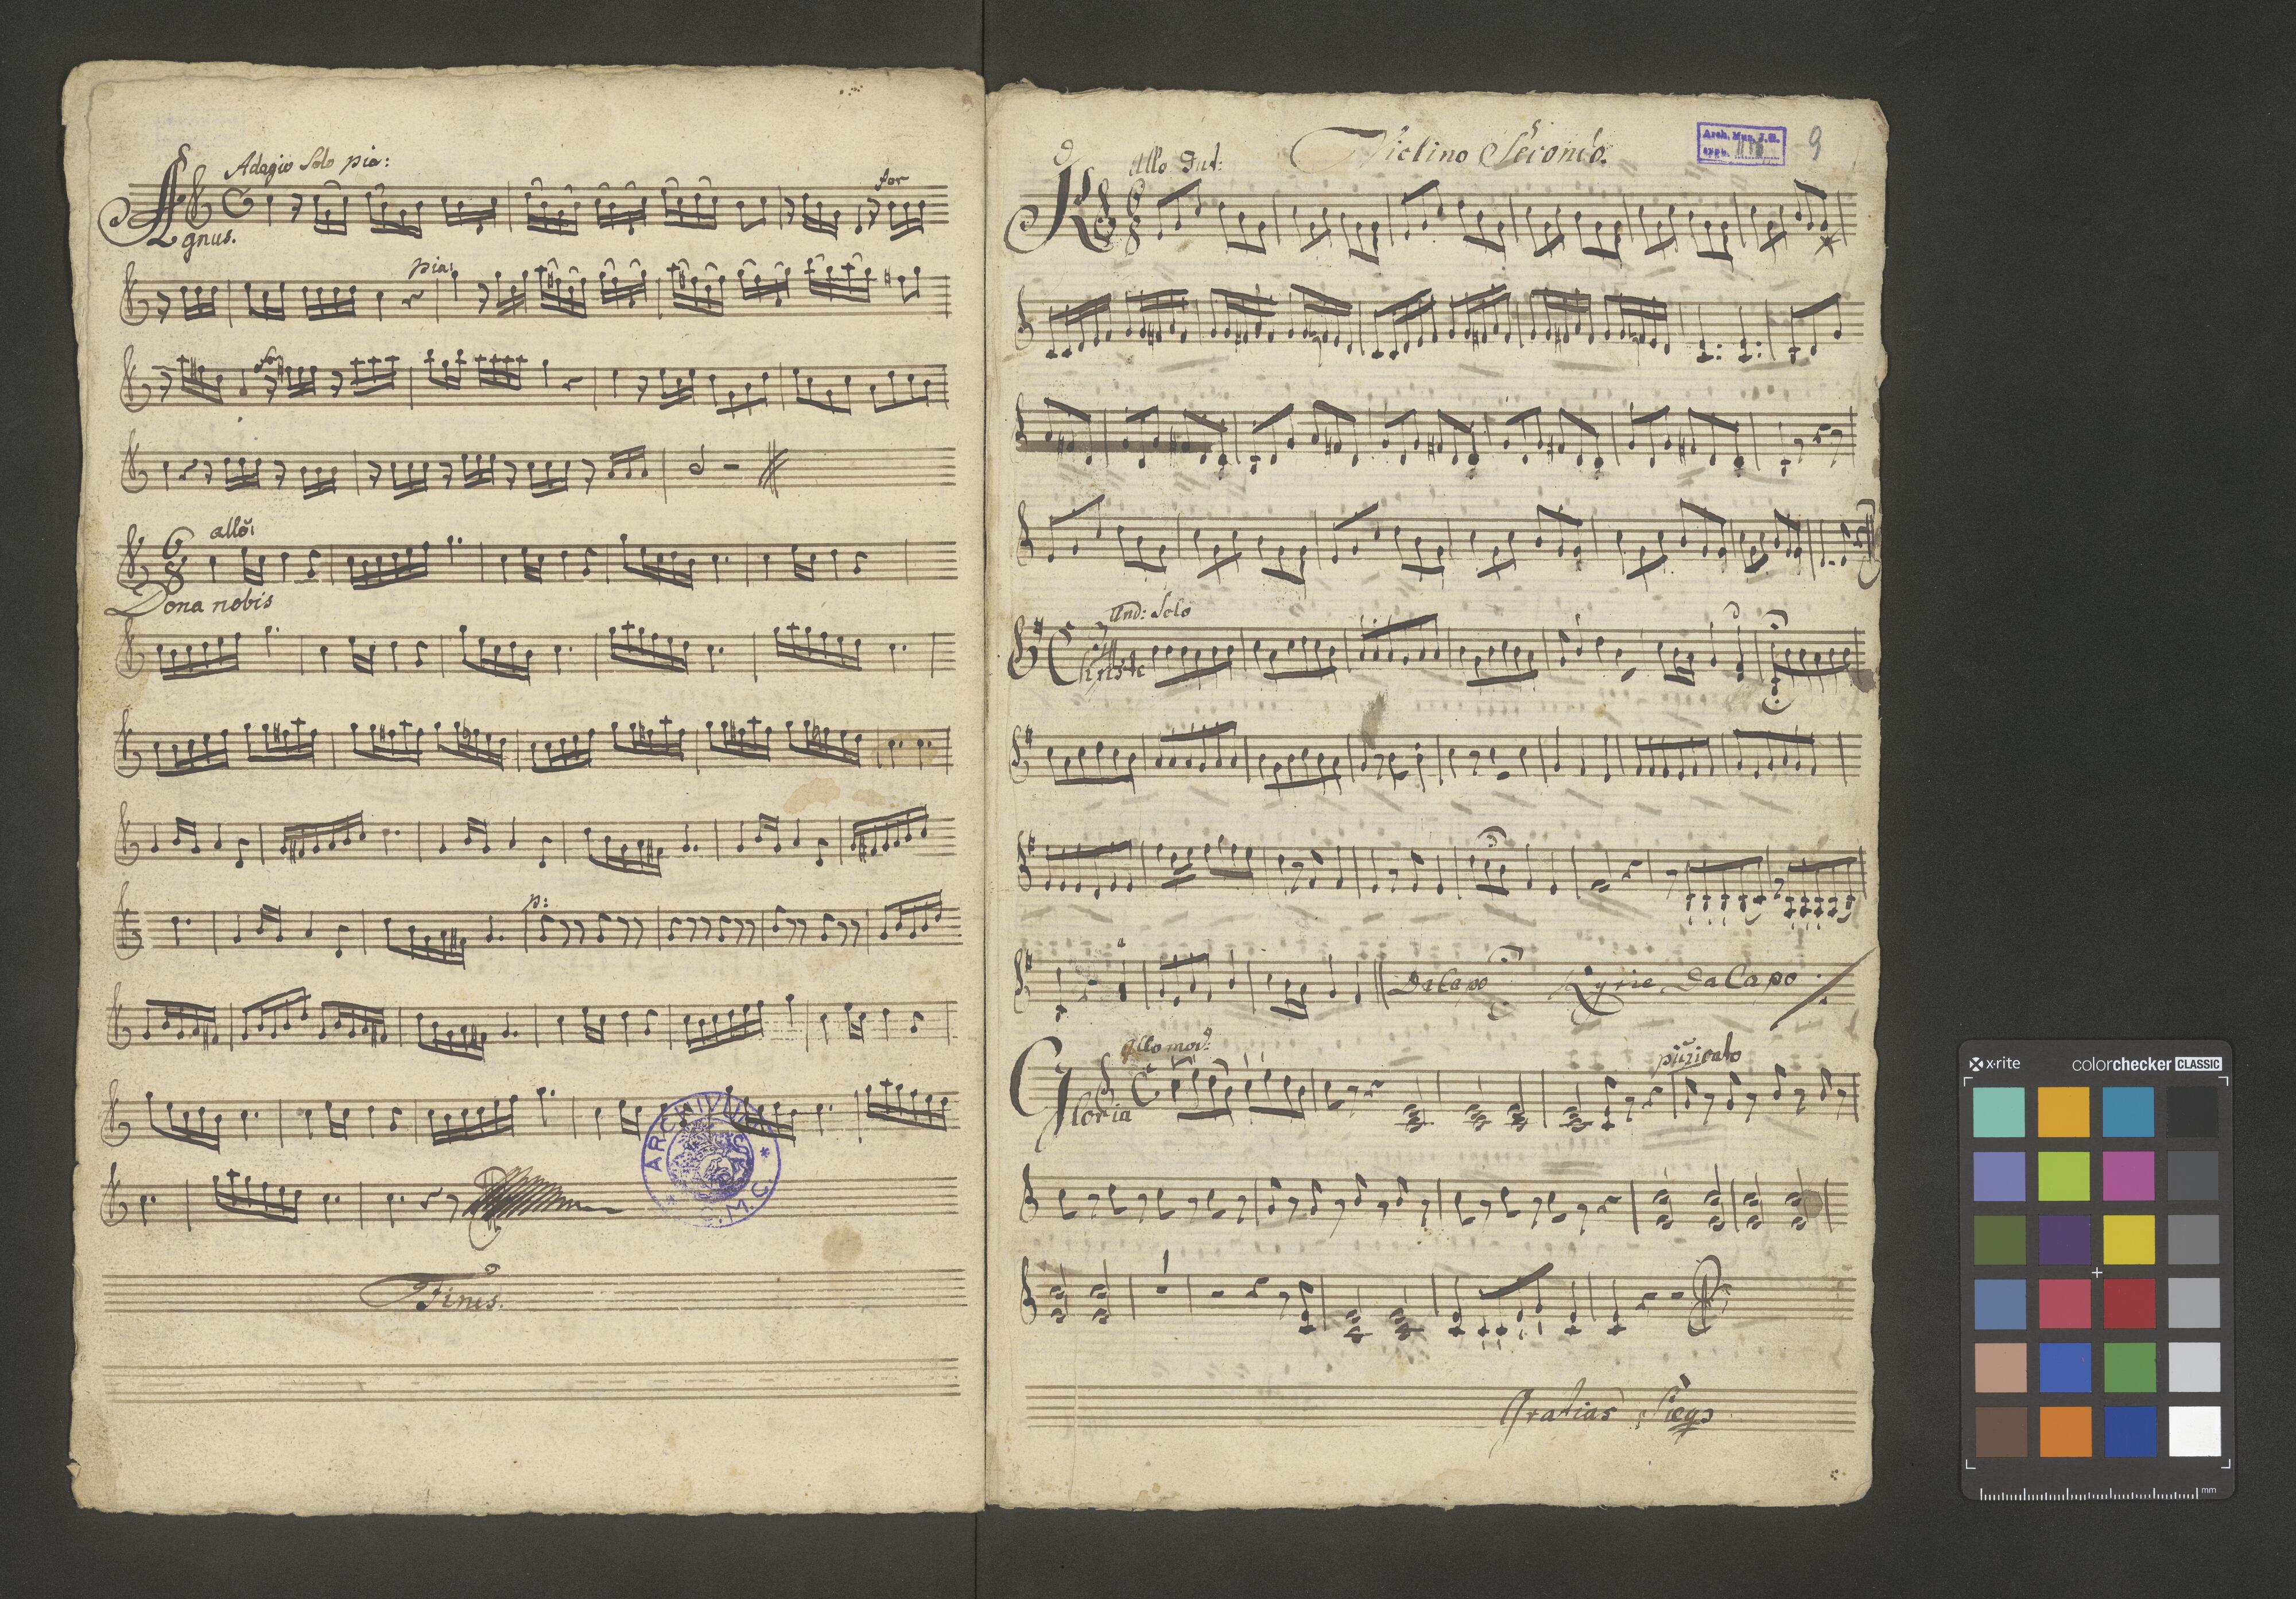 Adagio Solo pia:
for
Agnus.
pia:
for
allo:
Dona nobis
p:
ARCHIVUM
Finis.
Violino Secondo.
Arch. Mus. J. G.
9
Allo
K
And: Solo
Christe
Da Capo
Kyrie Da Capo
allo mod:
Gloria
pizzicato
Gratias Sieqs
x·rite
colorchecker CLASSIC
mm